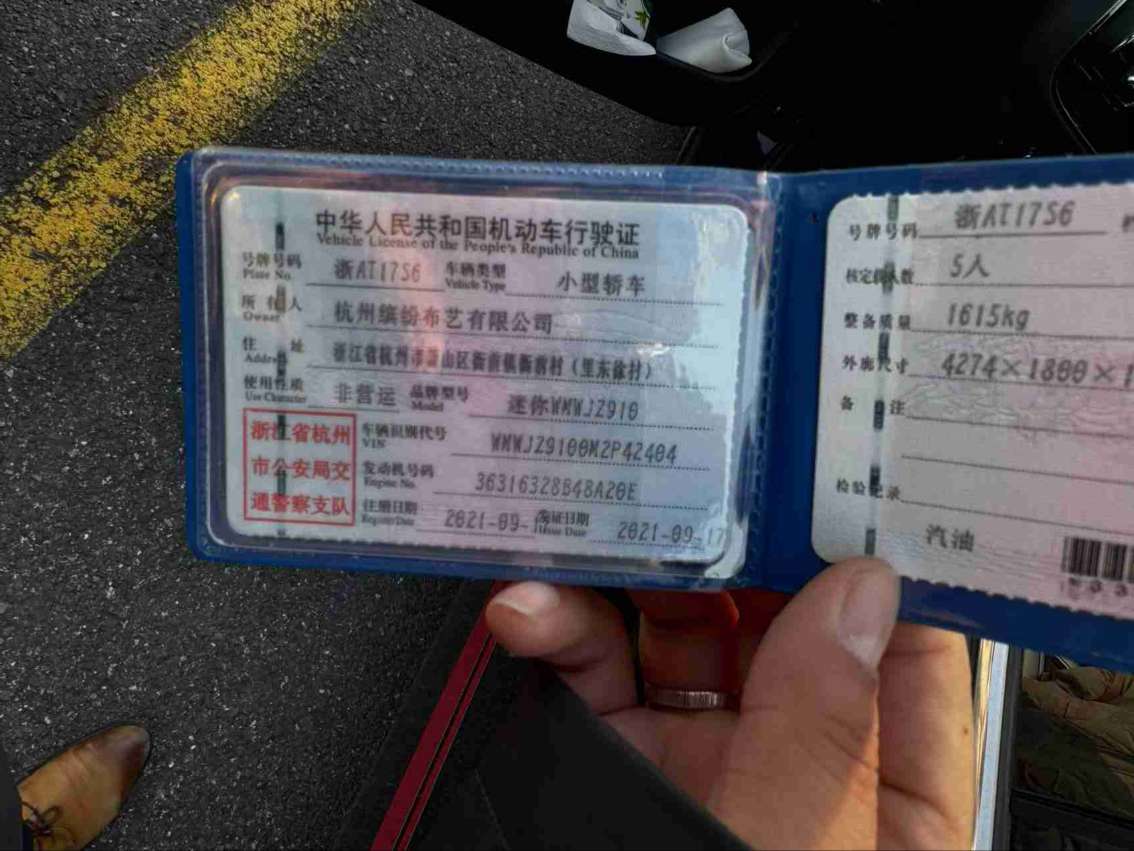 中华人民共和国机动车行驶证
Vehicle License of the People's Republic of China
号牌号码 浙AT17S6 车辆类型 小型轿车
Plate No. Vehicle Type
所有人 杭州缤纷布艺有限公司
Owner
住址 浙江省杭州市萧山区衙前镇衙前村（里东徐村）
Address
使用性质 非营运 品牌型号 迷你WMWJZ910
Use Character Model
浙江省杭州
市公安局交
通警察支队
车辆识别代号 WMWJZ9100M2P42404
VIN
发动机号码 36316328B48A20E
Engine No.
注册日期 2021-09- 发证日期 2021-09-17
Register Date Issue Date
号牌号码 浙AT17S6
核定载人数 5人
整备质量 1615kg
外廓尺寸 4274×1800×1
备注
检验记录
汽油